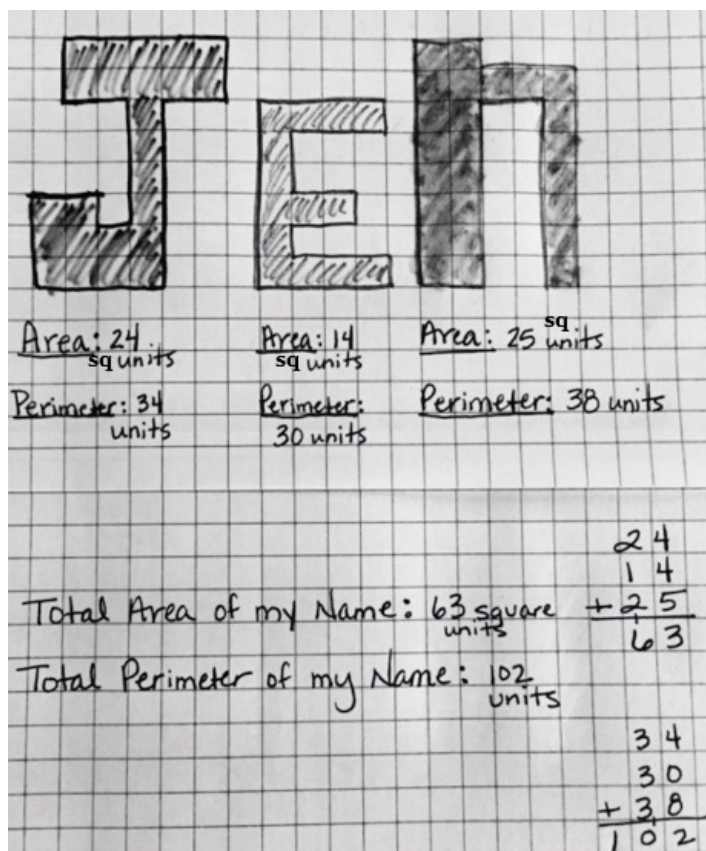 Jen
Area: 24
sq units
Perimeter: 34
units
Area: 14
sq units
Perimeter:
30 units
Area: 25 sq units
Perimeter: 38 units
Total Area of my Name: 63 square
units
24
14
+ 25
63
Total Perimeter of my Name: 102
units
34
30
+ 38
102